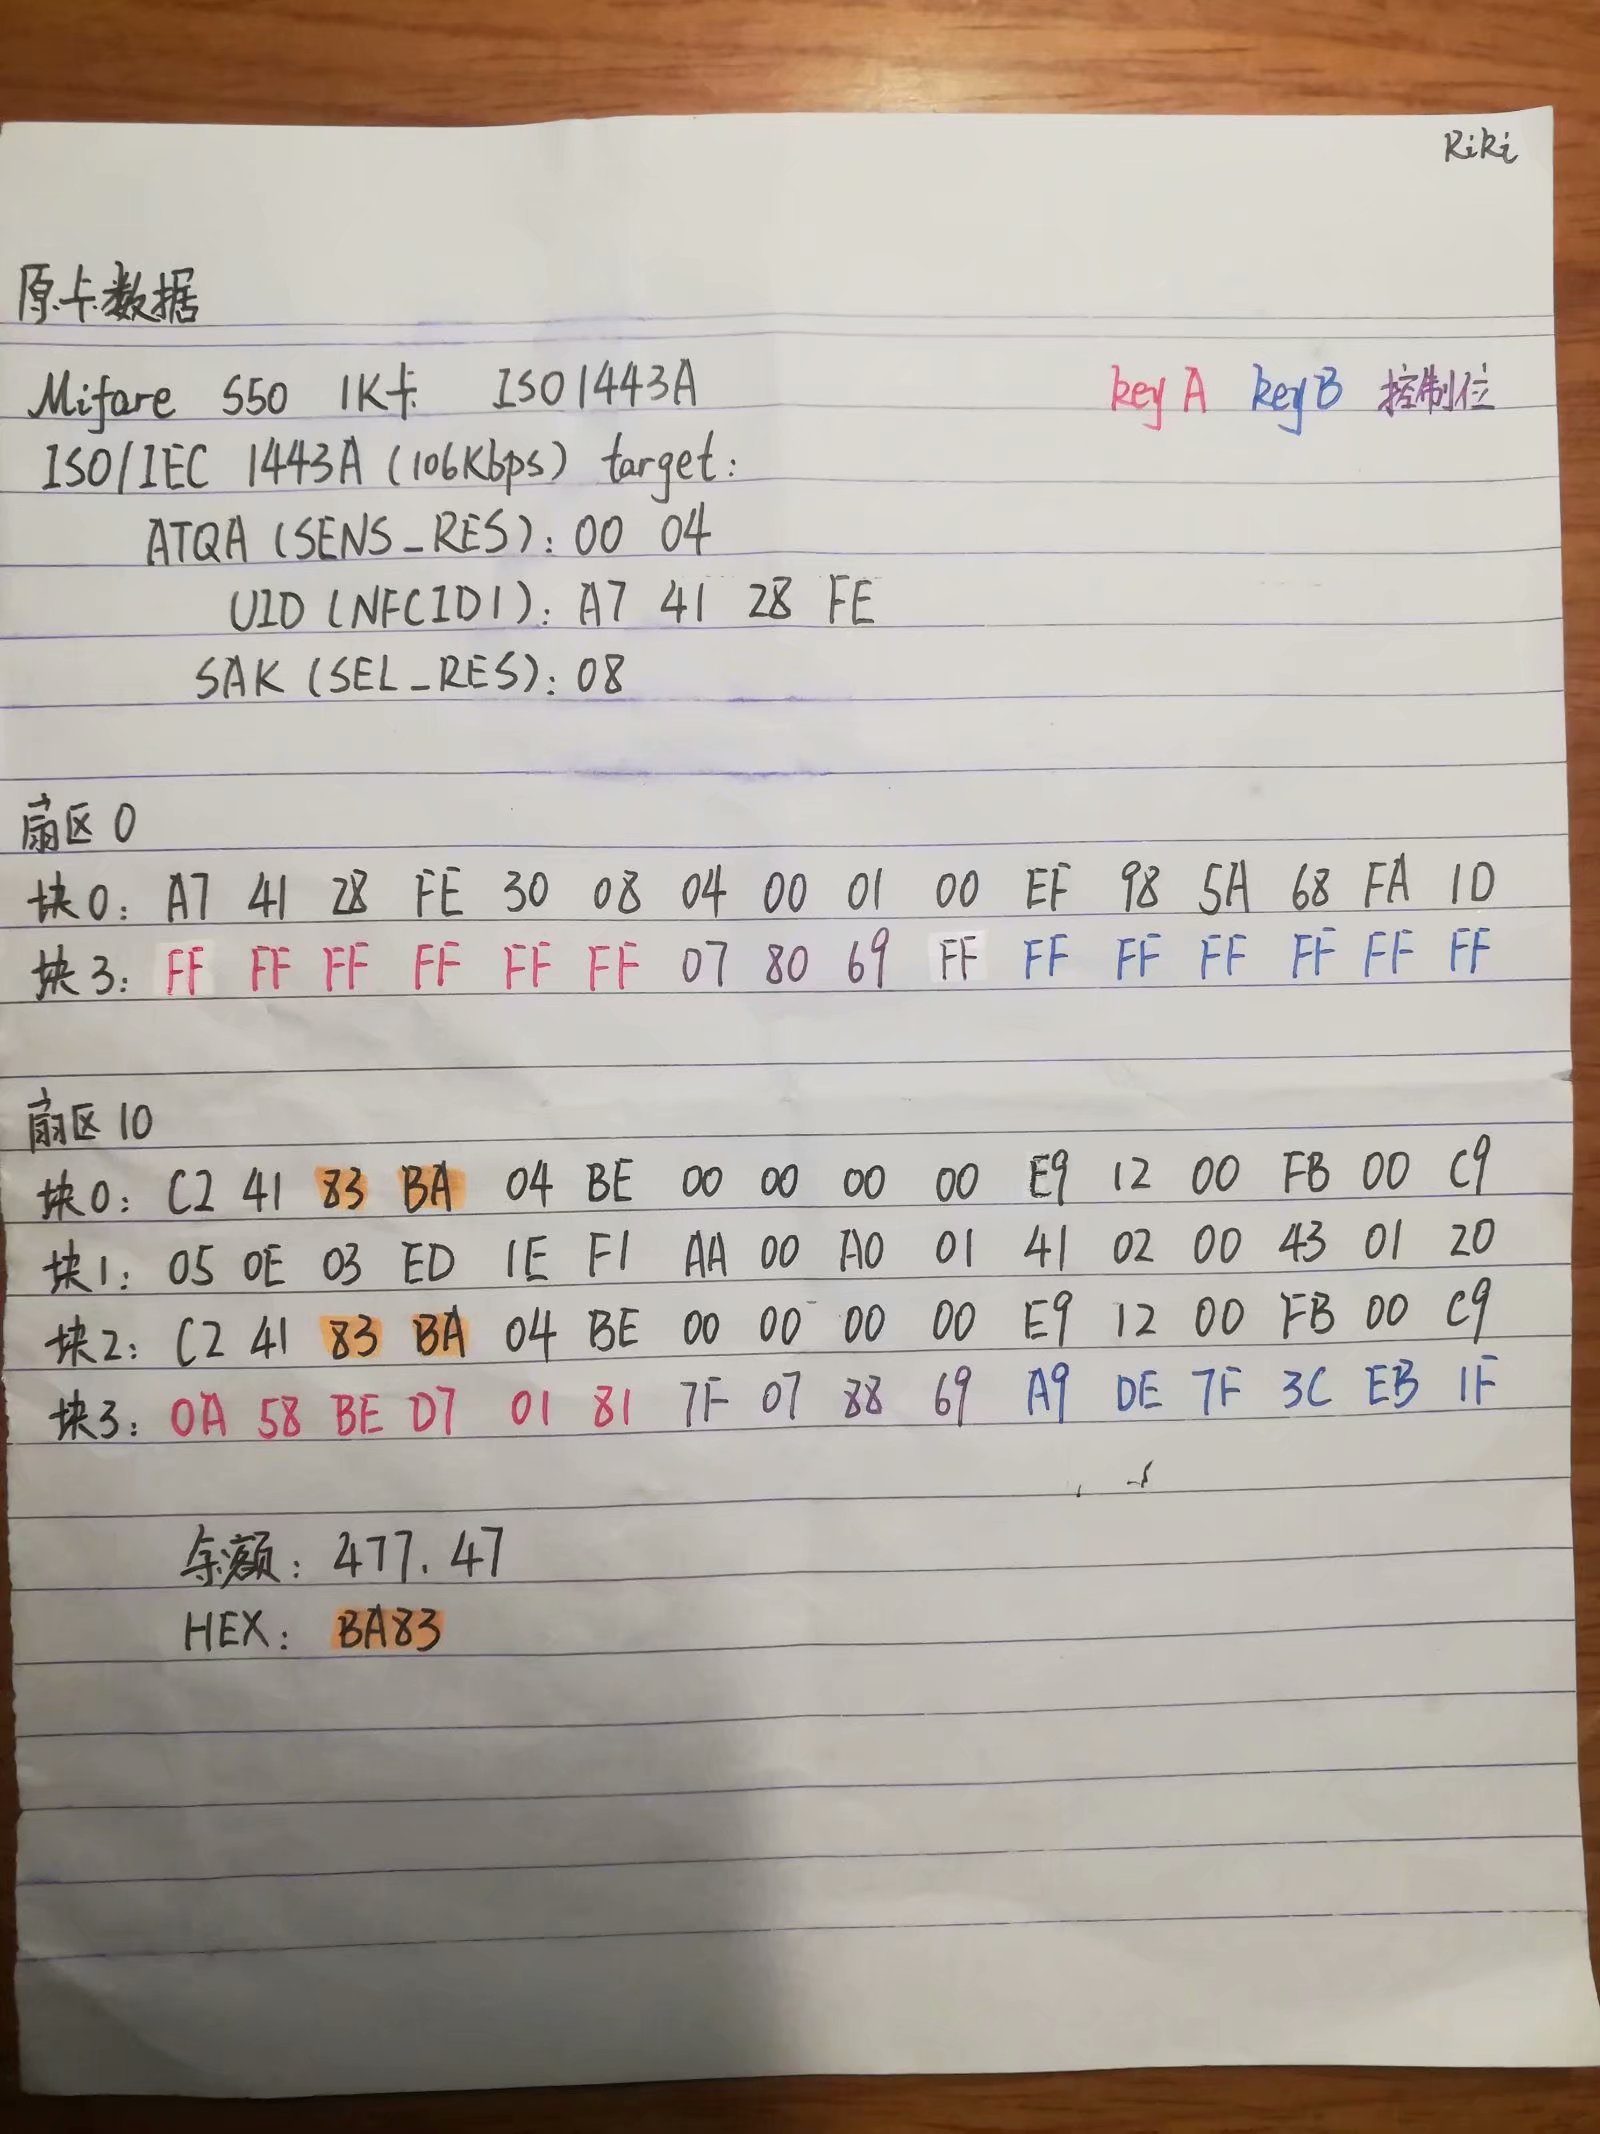 RiRi
原卡数据
Mifare S50 1K卡 ISO1443A keyA keyB 控制位
ISO/IEC 1443A (106Kbps) target:
ATQA (SENS_RES): 00 04
UID (NFCID1): A7 41 28 FE
SAK (SEL_RES): 08
扇区0
块0: A7 41 28 FE 30 08 04 00 01 00 EF 98 5A 68 FA 1D
块3: FF FF FF FF FF FF 07 80 69 FF FF FF FF FF FF FF
扇区10
块0: C2 41 83 BA 04 BE 00 00 00 00 E9 12 00 FB 00 C9
块1: 05 0E 03 ED 1E F1 AA 00 A0 01 41 02 00 43 01 20
块2: C2 41 83 BA 04 BE 00 00 00 00 E9 12 00 FB 00 C9
块3: 0A 58 BE D7 01 81 7F 07 88 69 A9 DE 7F 3C EB 1F
余额: 477.47
HEX: BA83